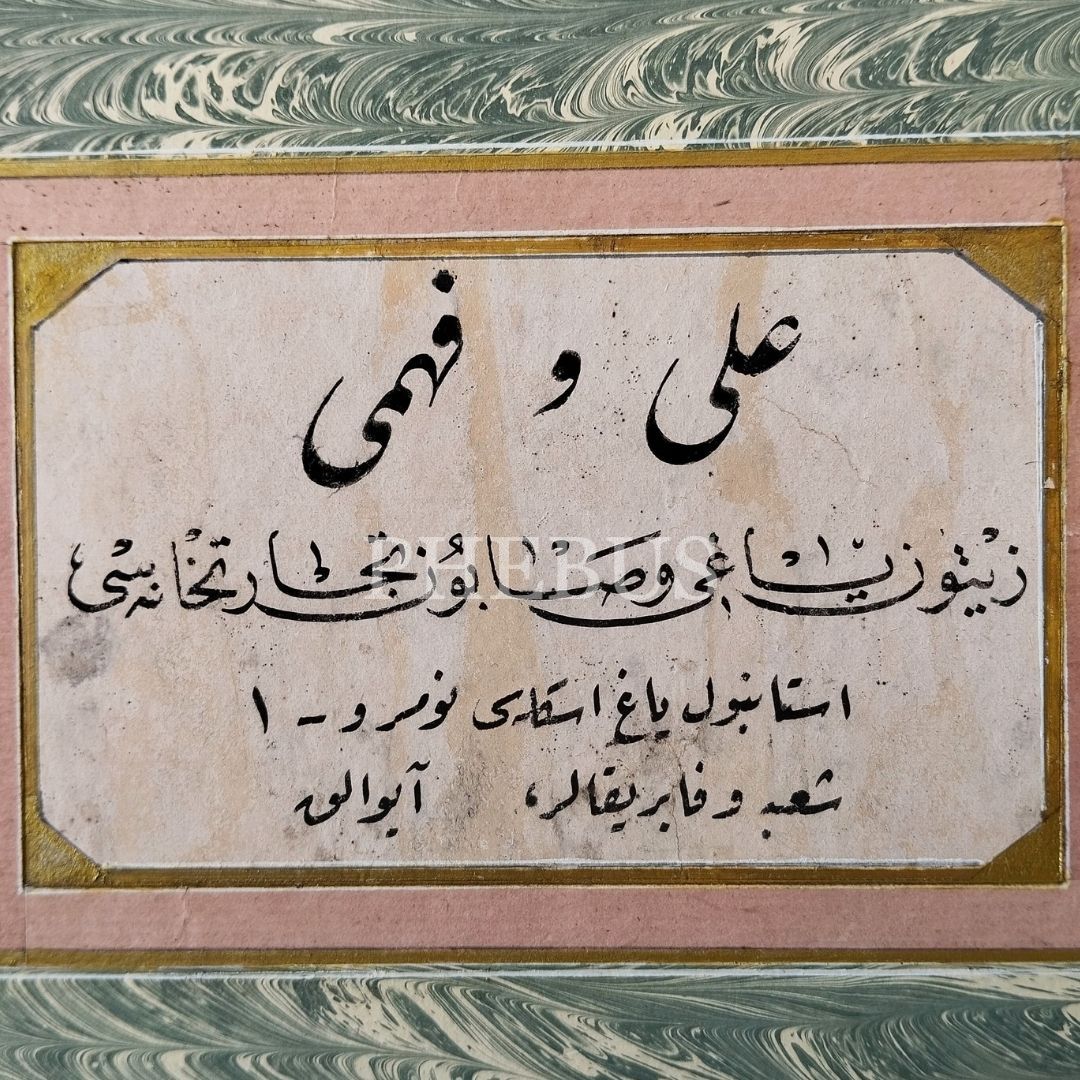 علی و فهمی
زیتون یاغی و صابون تجارتخانه‌سی
استانبول یاغ اسکله‌سی نومرو - ١
شعبه و فابریقالر، آیوالق
PHEBUS